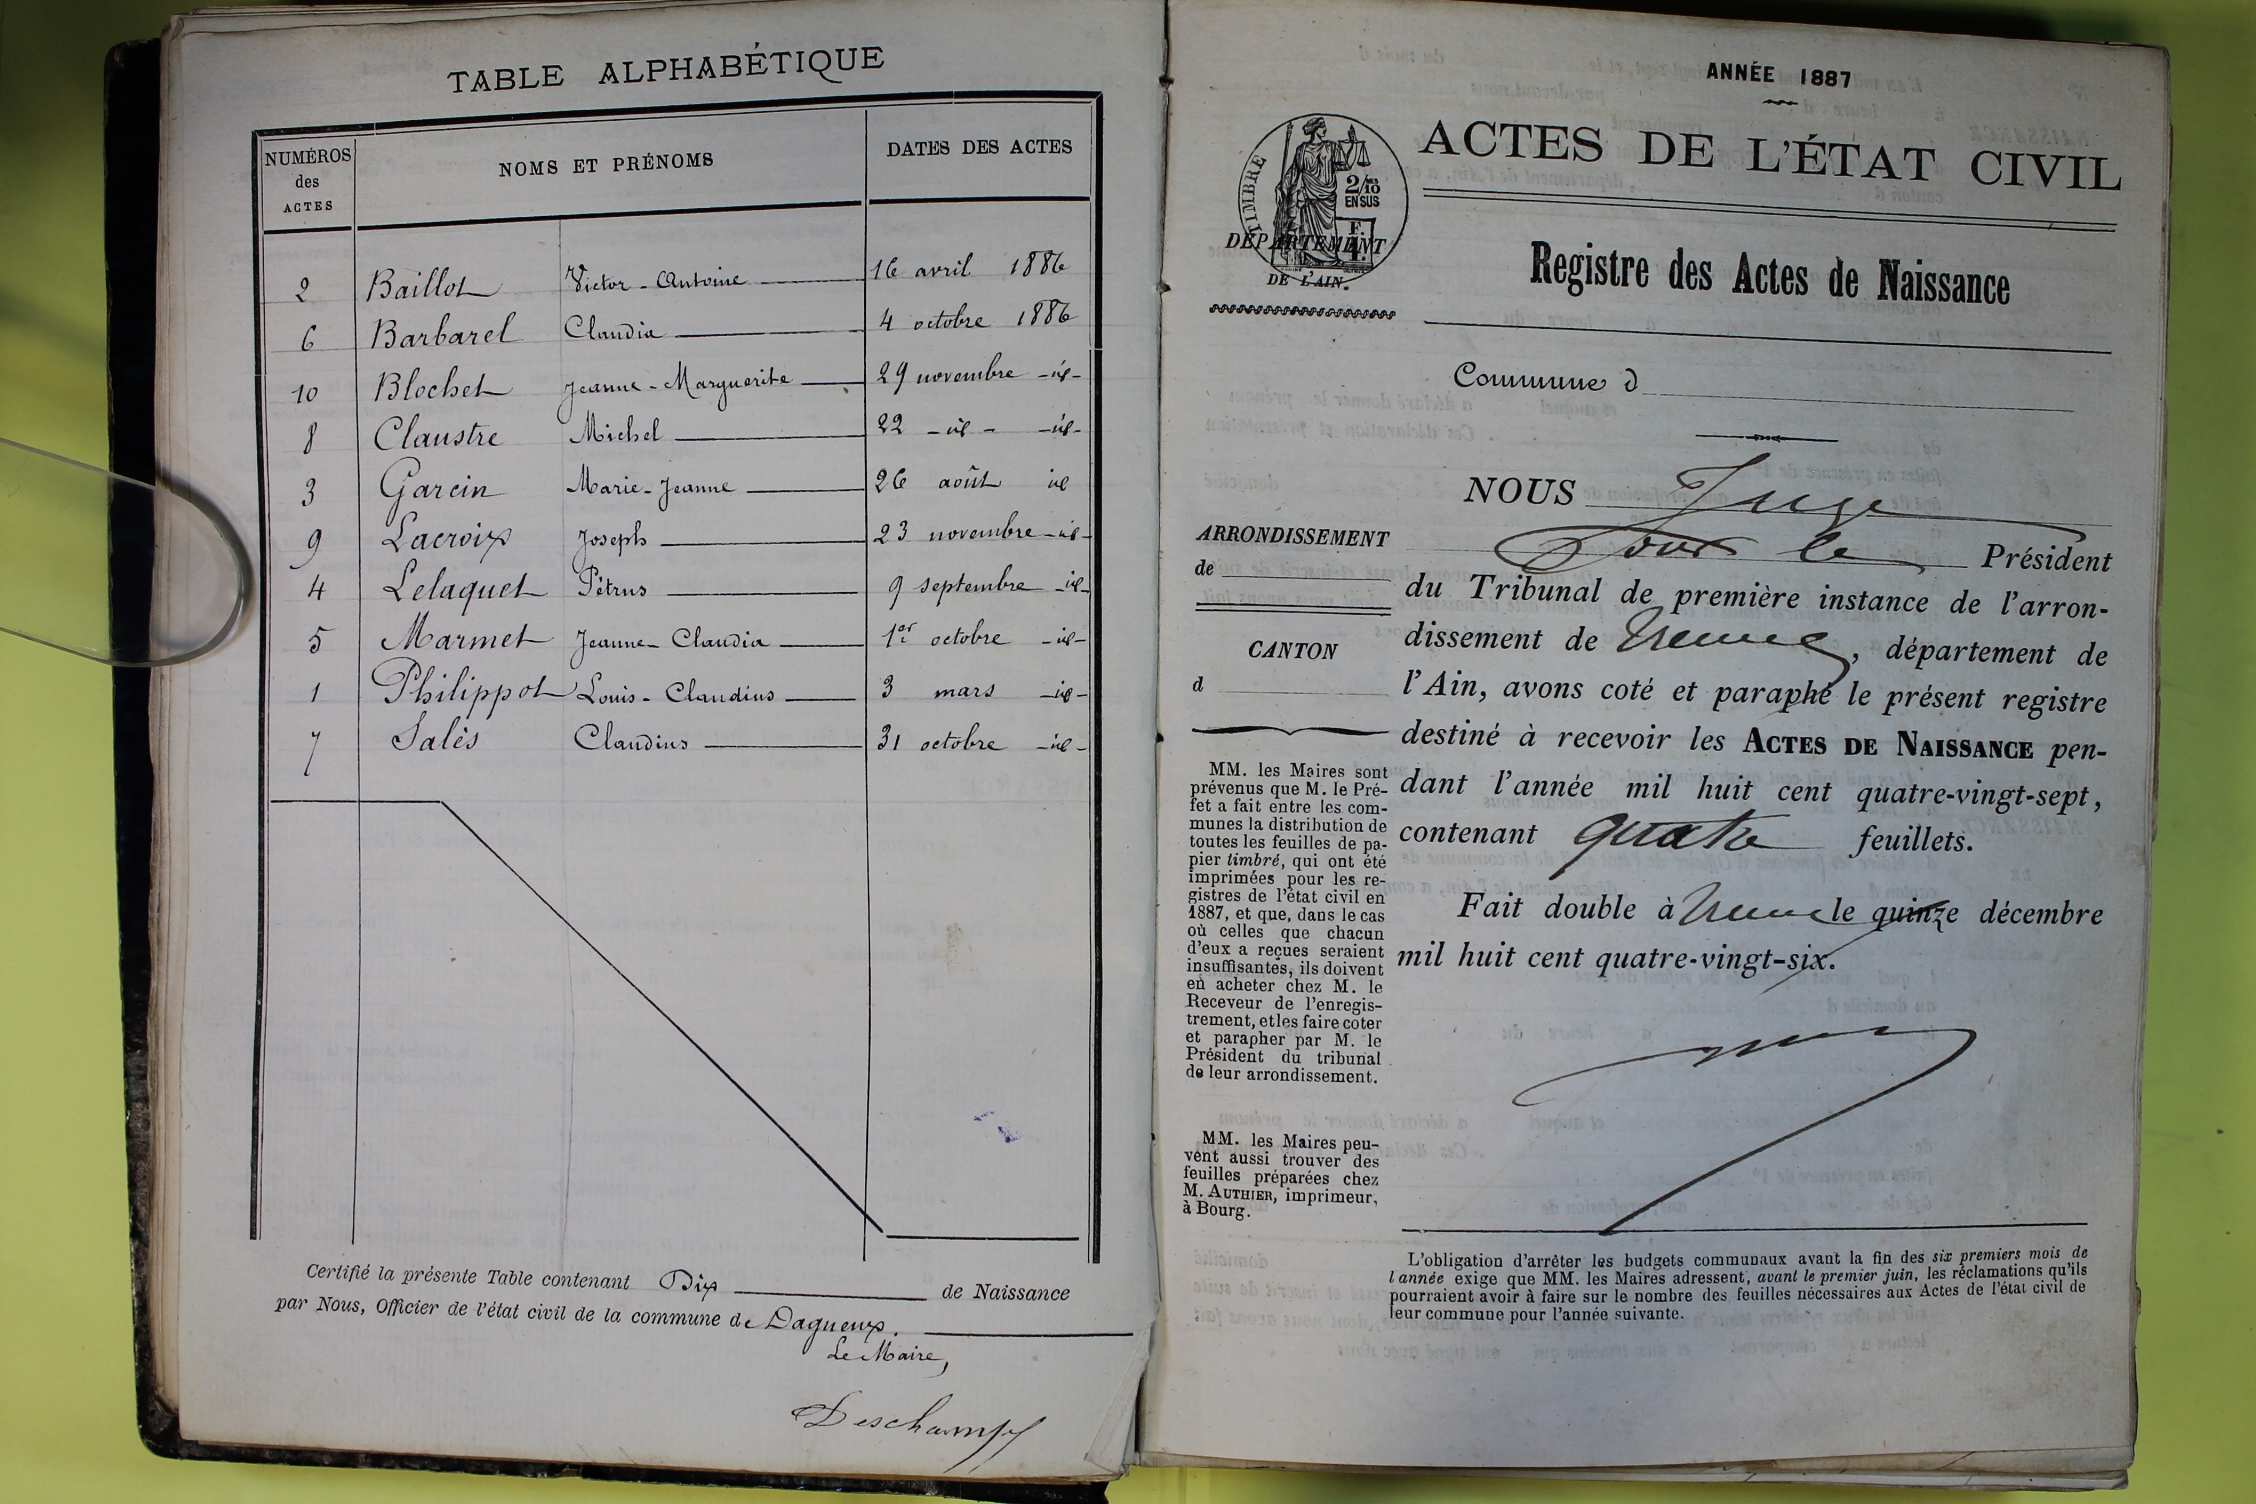 TABLE ALPHABÉTIQUE
NUMÉROS
des
ACTES
NOMS ET PRÉNOMS
DATES DES ACTES
2 Baillot Victor-Antoine 16 avril 1886
6 Barbarel Claudia 4 octobre 1886
10 Blochet Jeanne-Marguerite 29 novembre -id-
8 Claustre Michel 22 -id- -id-
3 Garcin Marie-Jeanne 26 août id
9 Lacroix Joseph 23 novembre -id-
4 Lelaquet Pétrus 9 septembre -id-
5 Marmet Jeanne-Claudia 1er octobre -id-
1 Philippot Louis-Claudius 3 mars -id-
7 Salès Claudius 31 octobre -id-
Certifié la présente Table contenant Dix de Naissance
par Nous, Officier de l'état civil de la commune de Dagneux.
Le Maire,
Deschamps
ANNÉE 1887
TIMBRE
2/10 EN SUS
F.
DÉPARTEMENT
DE L'AIN.
ACTES DE L'ÉTAT CIVIL
Registre des Actes de Naissance
Commune d
ARRONDISSEMENT
de
CANTON
d
MM. les Maires sont
prévenus que M. le Pré-
fet a fait entre les com-
munes la distribution de
toutes les feuilles de pa-
pier timbré, qui ont été
imprimées pour les re-
gistres de l'état civil en
1887, et que, dans le cas
où celles que chacun
d'eux a reçues seraient
insuffisantes, ils doivent
en acheter chez M. le
Receveur de l'enregis-
trement, et les faire coter
et parapher par M. le
Président du tribunal
de leur arrondissement.
MM. les Maires peu-
vent aussi trouver des
feuilles préparées chez
M. AUTHIER, imprimeur,
à Bourg.
NOUS Juge
Pour le Président
du Tribunal de première instance de l'arron-
dissement de , département de
l'Ain, avons coté et paraphé le présent registre
destiné à recevoir les ACTES DE NAISSANCE pen-
dant l'année mil huit cent quatre-vingt-sept,
contenant quatre feuillets.
Fait double à le quinze décembre
mil huit cent quatre-vingt-six.
L'obligation d'arrêter les budgets communaux avant la fin des six premiers mois de
l'année exige que MM. les Maires adressent, avant le premier juin, les réclamations qu'ils
pourraient avoir à faire sur le nombre des feuilles nécessaires aux Actes de l'état civil de
leur commune pour l'année suivante.